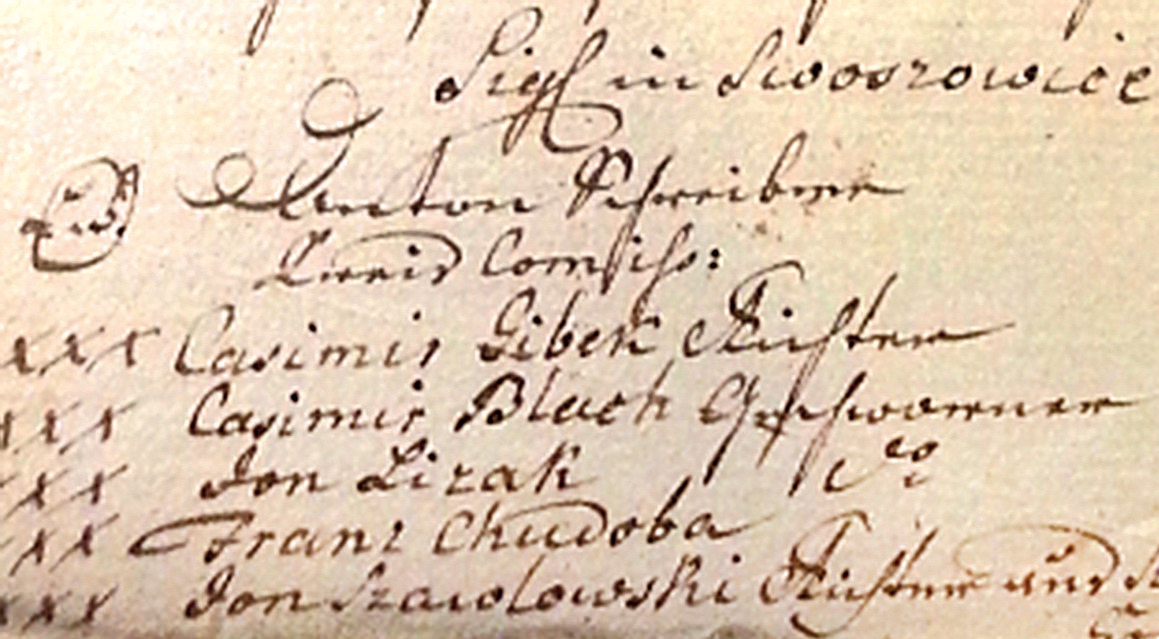 Sigl in Swoszowice
Anton Schreiber
Kreis Comiss:
xxx Casimir Gibek Richter
xxx Casimir Blach Geschworner
xxx Jon Lizak do
xxx Franz Chudoba
xxx Jon Szawlowski Richter und